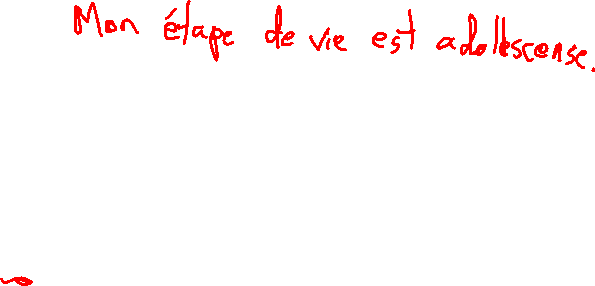 Mon étape de vie est adollescense.